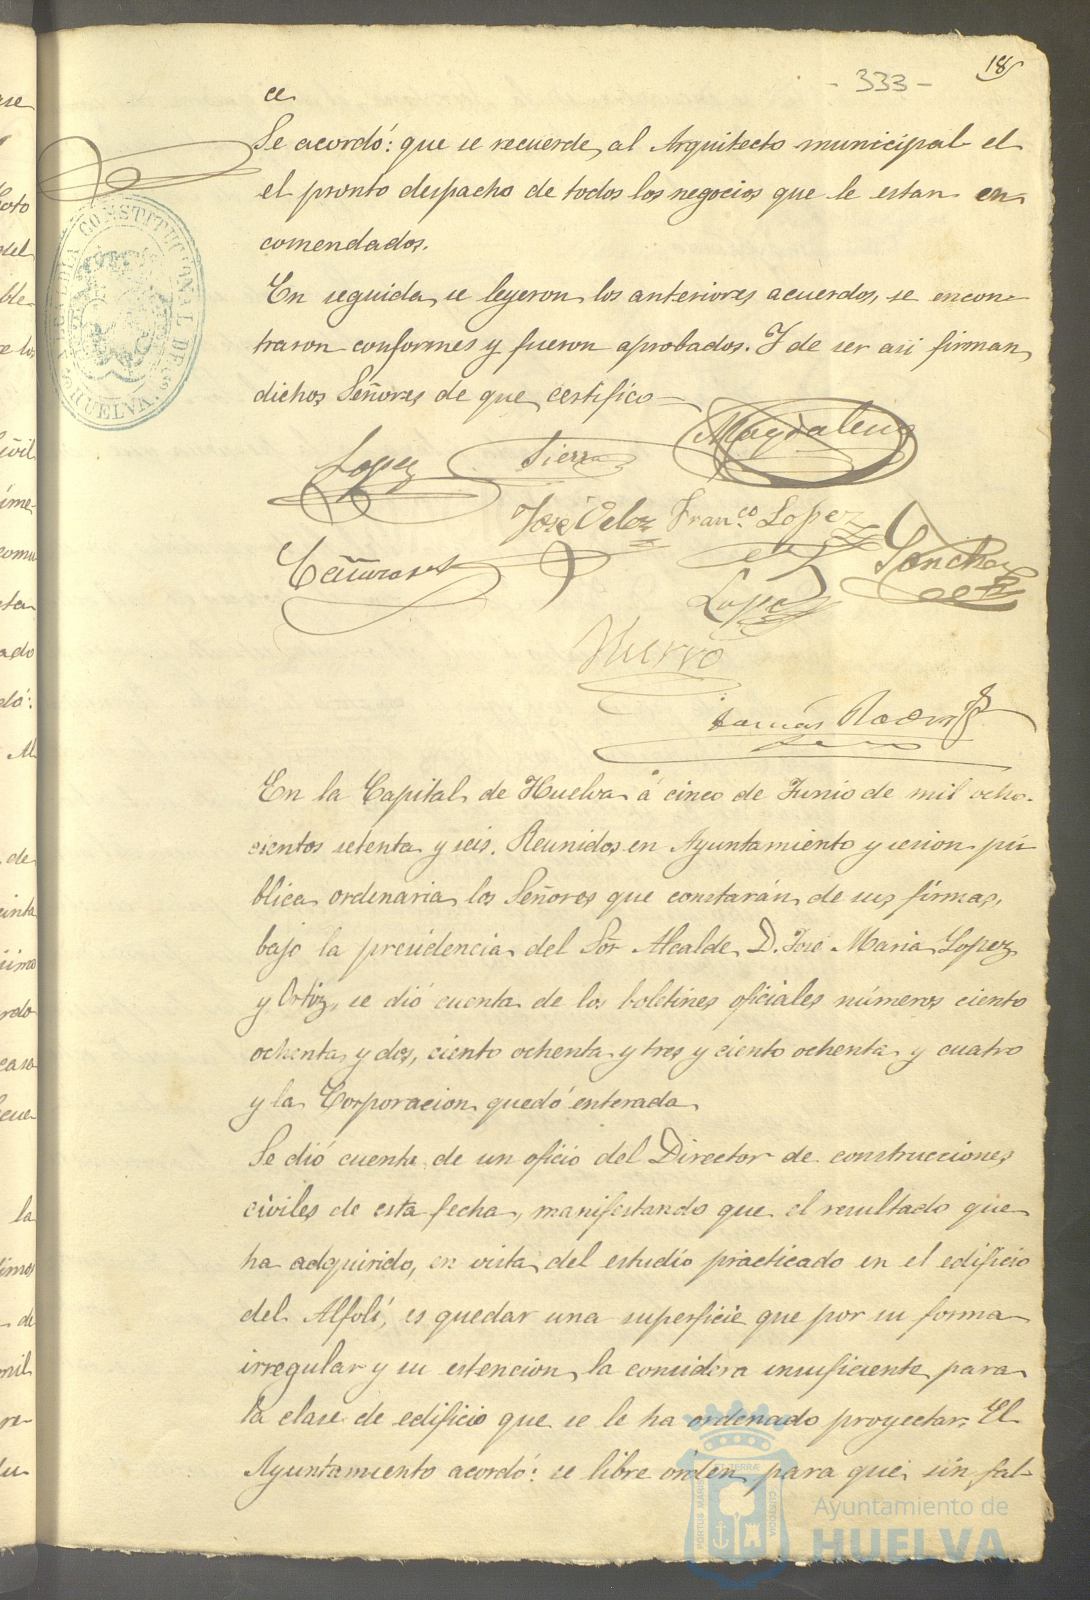 - 333 -
18
ce
Se acordó: que se recuerde al Arquitecto municipal el
el pronto despacho de todos los negocios que le estan en
comendados.
En seguida se leyeron los anteriores acuerdos, se encon-
traron conformes y fueron aprobados. Y de ser asi firman
dichos Señores de que certifico
Lopez Sierra Magdalena
José Velez Fran.co Lopez
Sanchez
Lopez
Hierro
Tomás
En la Capital de Huelva á cinco de Junio de mil ocho-
cientos setenta y seis. Reunidos en Ayuntamiento y sesion pú
blica ordinaria los Señores que constarán de sus firmas,
bajo la presidencia del Sor Alcalde D. José Maria Lopez
y Ortiz, se dió cuenta de los boletines oficiales números ciento
ochenta y dos, ciento ochenta y tres y ciento ochenta y cuatro
y la Corporacion quedó enterada
Se dió cuenta de un oficio del Director de construcciones
civiles de esta fecha, manifestando que el resultado que
ha adquirido, en vista del estudio practicado en el edificio
del Alfolí, es quedar una superficie que por su forma
irregular y su estencion la considera insuficiente para
la clase de edificio que se le ha ordenado proyectar. El
Ayuntamiento acordó: se libre órden para que sin fal-
ALCALDIA CONSTITUCIONAL DE HUELVA
PORTUS MARIS ET TERRÆ CUSTODIA
Ayuntamiento de
HUELVA